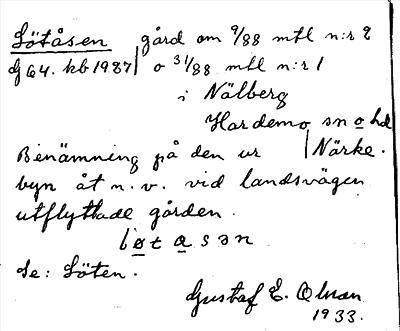 Lötåsen gård om 9/88 mtl n:r 2
dj 64. kb 1937 | o 31/88 mtl n:r 1
i Nälberg
Hardemo sn o hd
Benämning på den ur | Närke.
byn åt n. v. vid landsvägen
utflyttade gården.
lø̄tasən
Se: Löten.
Gustaf E. Olsson
1933.